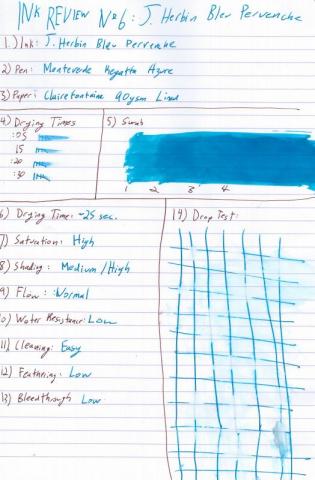 INK REVIEW No 6: J. Herbin Bleu Pervenche
1.) Ink: J. Herbin Bleu Pervenche
2) Pen: Monteverde Regatta Azure
3) Paper: Clairefontaine 90gsm Lined
4) Drying Times
:05
15
:20
:30
5) Swab
1 2 3 4
6) Drying Time: ~25 sec.
7) Saturation: High
8) Shading: Medium/High
9) Flow: Normal
10) Water Resistance: Low
11) Cleaning: Easy
12) Feathering: Low
13) Bleedthrough Low
14) Drop Test: